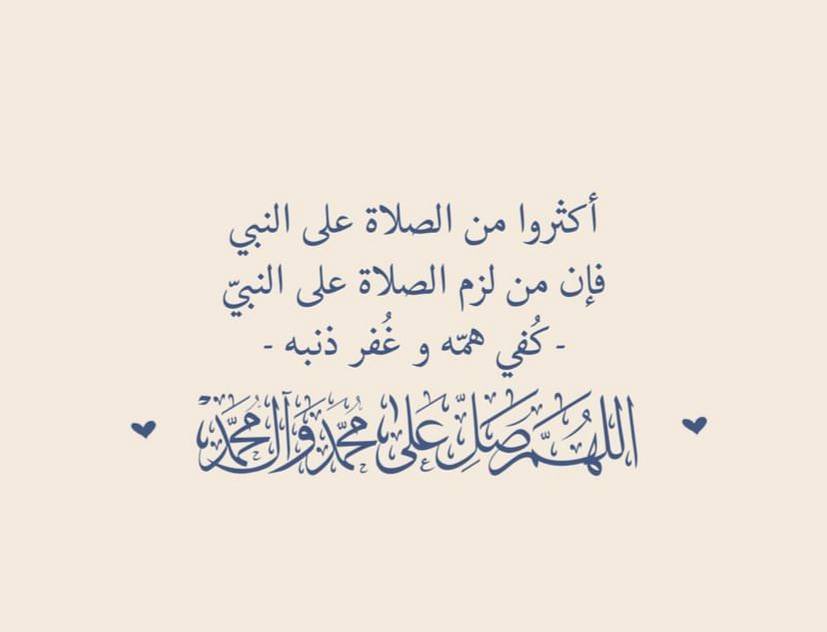 أكثروا من الصلاة على النبي
فإن من لزم الصلاة على النبيّ
- كُفي همّه و غُفر ذنبه -
اللهُمَّ صَلِّ عَلى مُحَمَّد وَآلِ مُحَمَّد